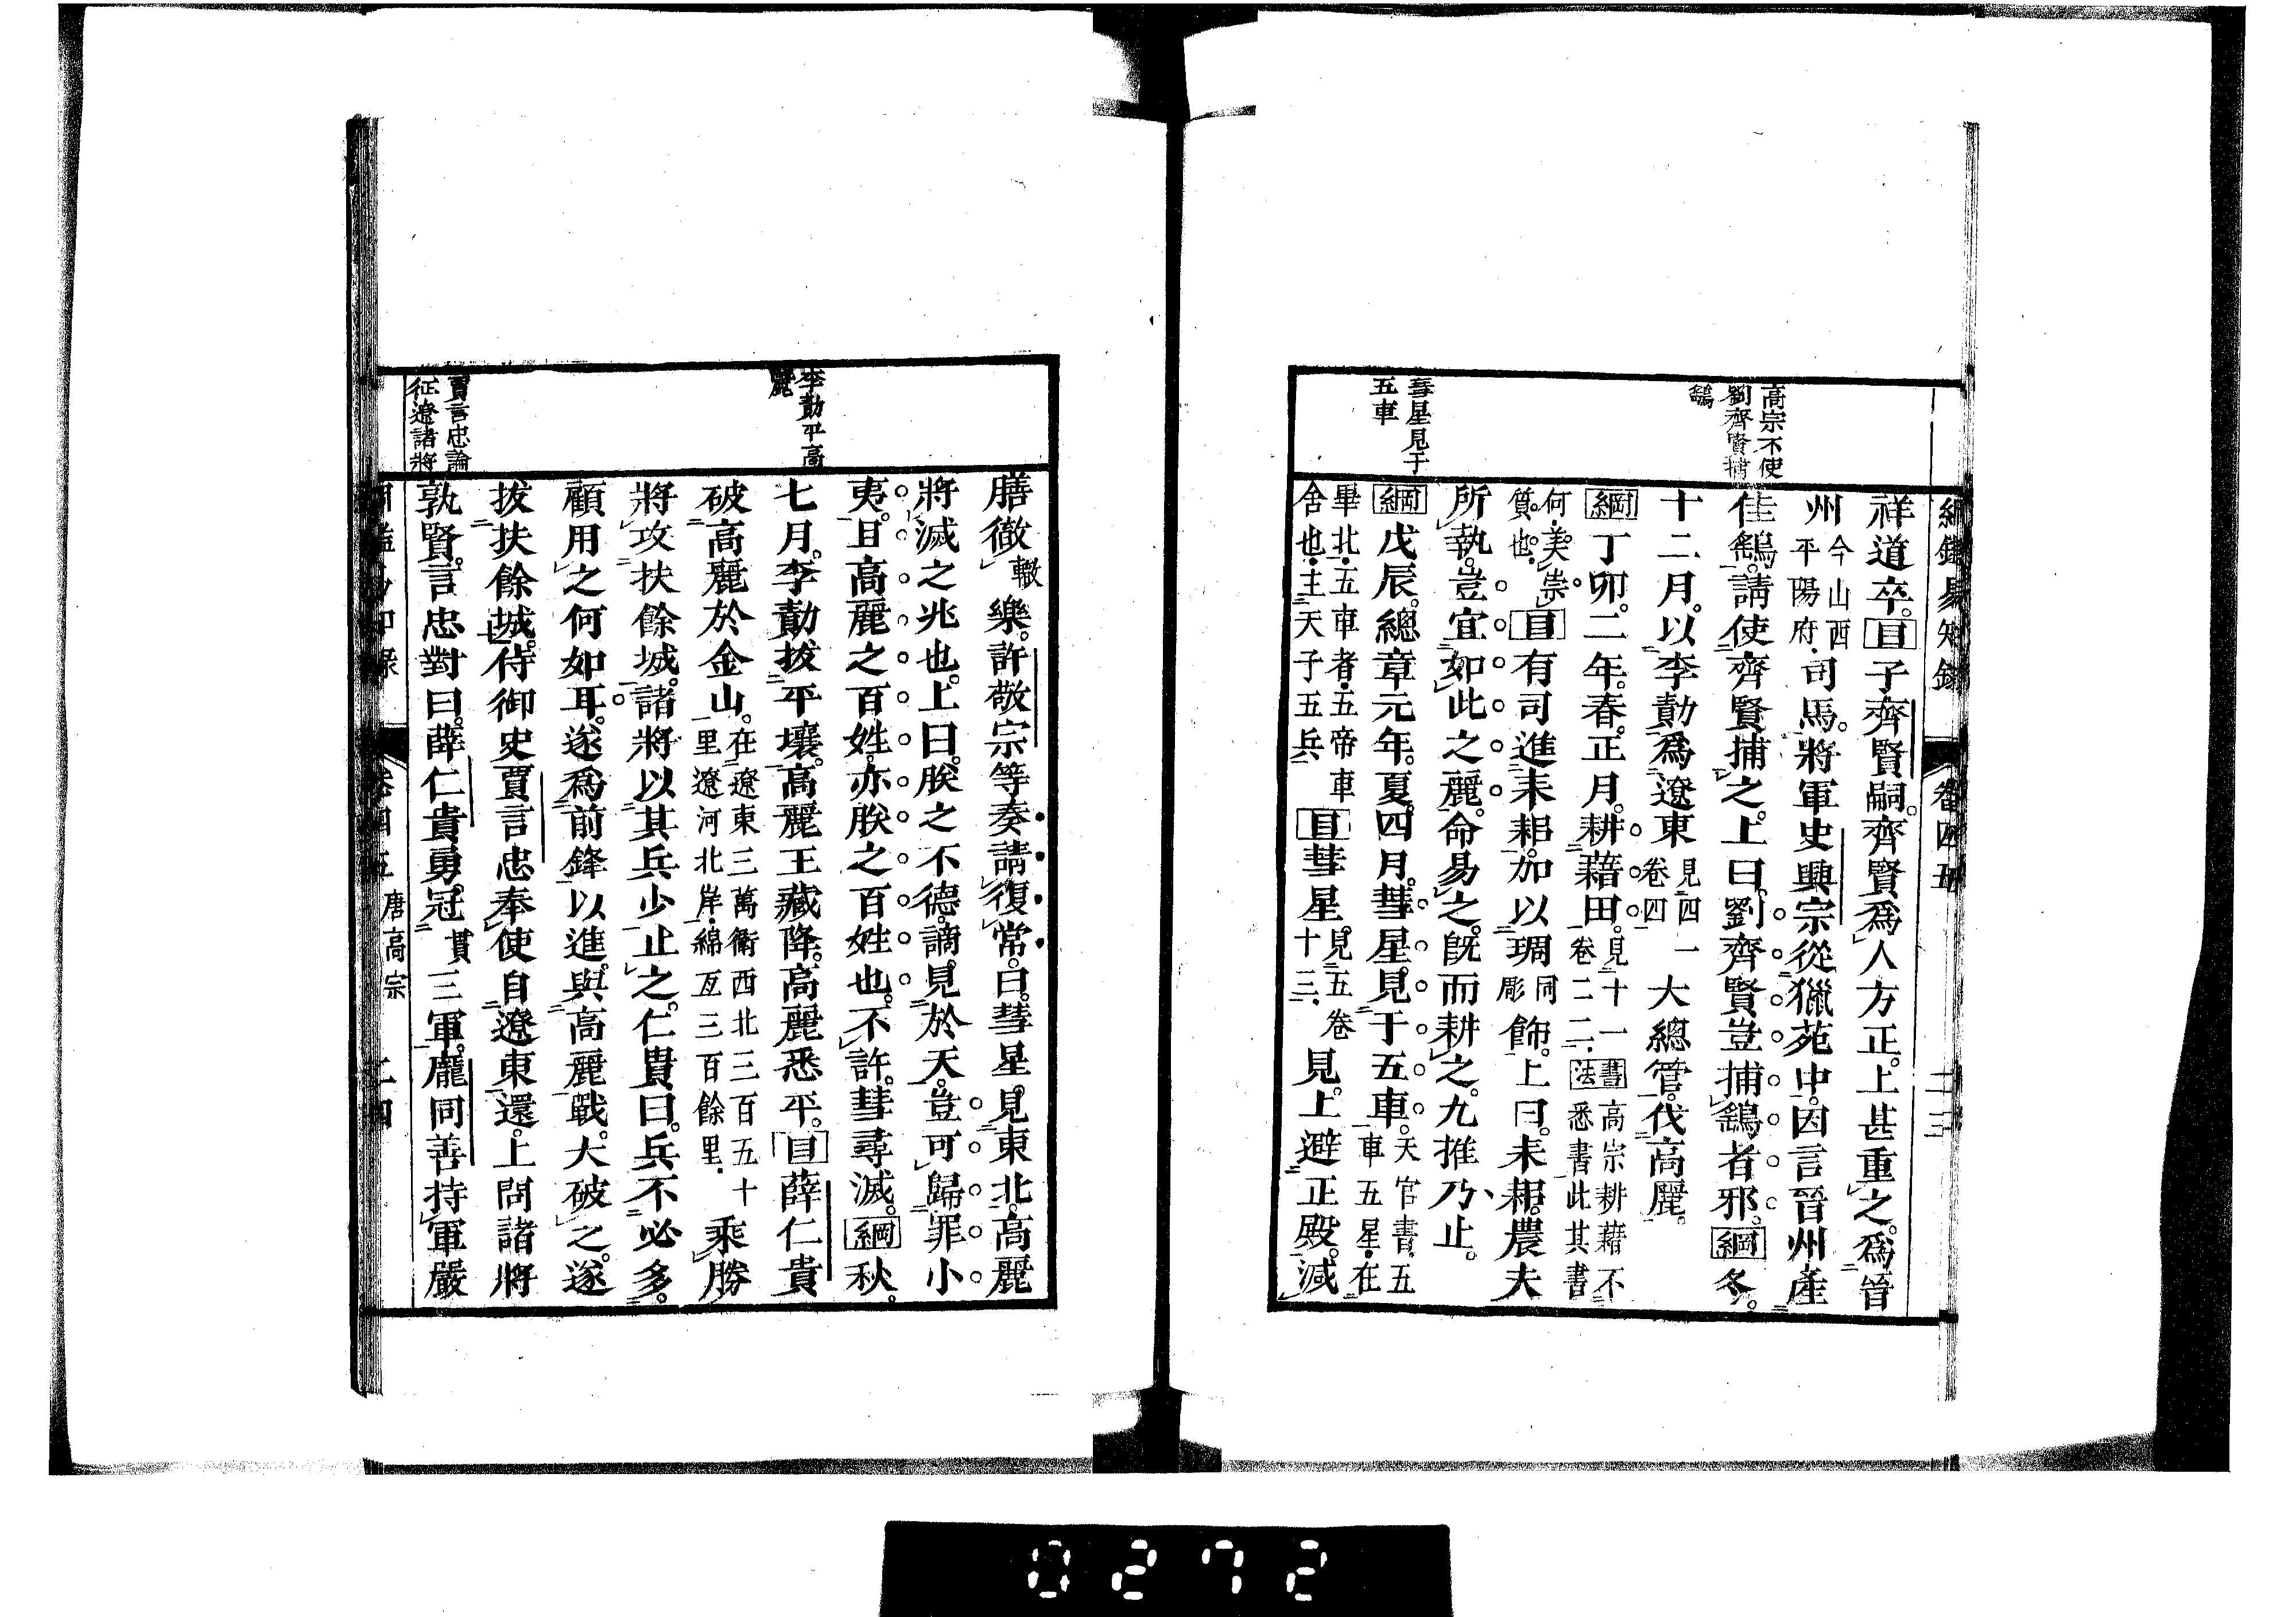 綱鑑易知錄 卷四五 二三
高宗不使
劉齊賢捕
鷂
彗星見于
五車
祥道卒。目子齊賢嗣。齊賢爲人方正。上甚重之。爲晉
州今山西平陽府司馬。將軍史興宗從獵苑中。因言晉州產
佳鷂。請使齊賢捕之。上曰。劉齊賢豈捕鷂者邪。綱冬。
十二月。以李勣爲遼東見四一卷四大總管。伐高麗。
綱丁卯。二年。春。正月。耕藉田。見十一卷二二書法高宗耕藉不悉書此其書
何美崇質也目有司進耒耜。加以琱同彫飾。上曰。耒耜。農夫
所執。豈宜如此之麗。命易之。既而耕之。九推乃止。
綱戊辰。總章元年。夏。四月。彗星見于五車。天官書五車五星在
畢北五車者五帝車舍也主天子五兵目彗星見五卷十三見。上避正殿。減
李勣平高
麗
賈言忠論
征遼諸將
膳徹轍樂。許敬宗等奏請復常。曰。彗星見東北。高麗
將滅之兆也。上曰。朕之不德。謫見於天。豈可歸罪小
夷。且高麗之百姓。亦朕之百姓也。不許。彗尋滅。綱秋。
七月。李勣拔平壤。高麗王藏降。高麗悉平。目薛仁貴
破高麗於金山。在遼東三萬衛西北三百五十里遼河北岸綿亙三百餘里乘勝
將攻扶餘城。諸將以其兵少止之。仁貴曰。兵不必多。
顧用之何如耳。遂爲前鋒以進。與高麗戰。大破之。遂
拔扶餘城。侍御史賈言忠奉使自遼東還。上問諸將
孰賢。言忠對曰。薛仁貴勇冠貫三軍。龐同善持軍嚴
卷四五 唐高宗 二四
0272